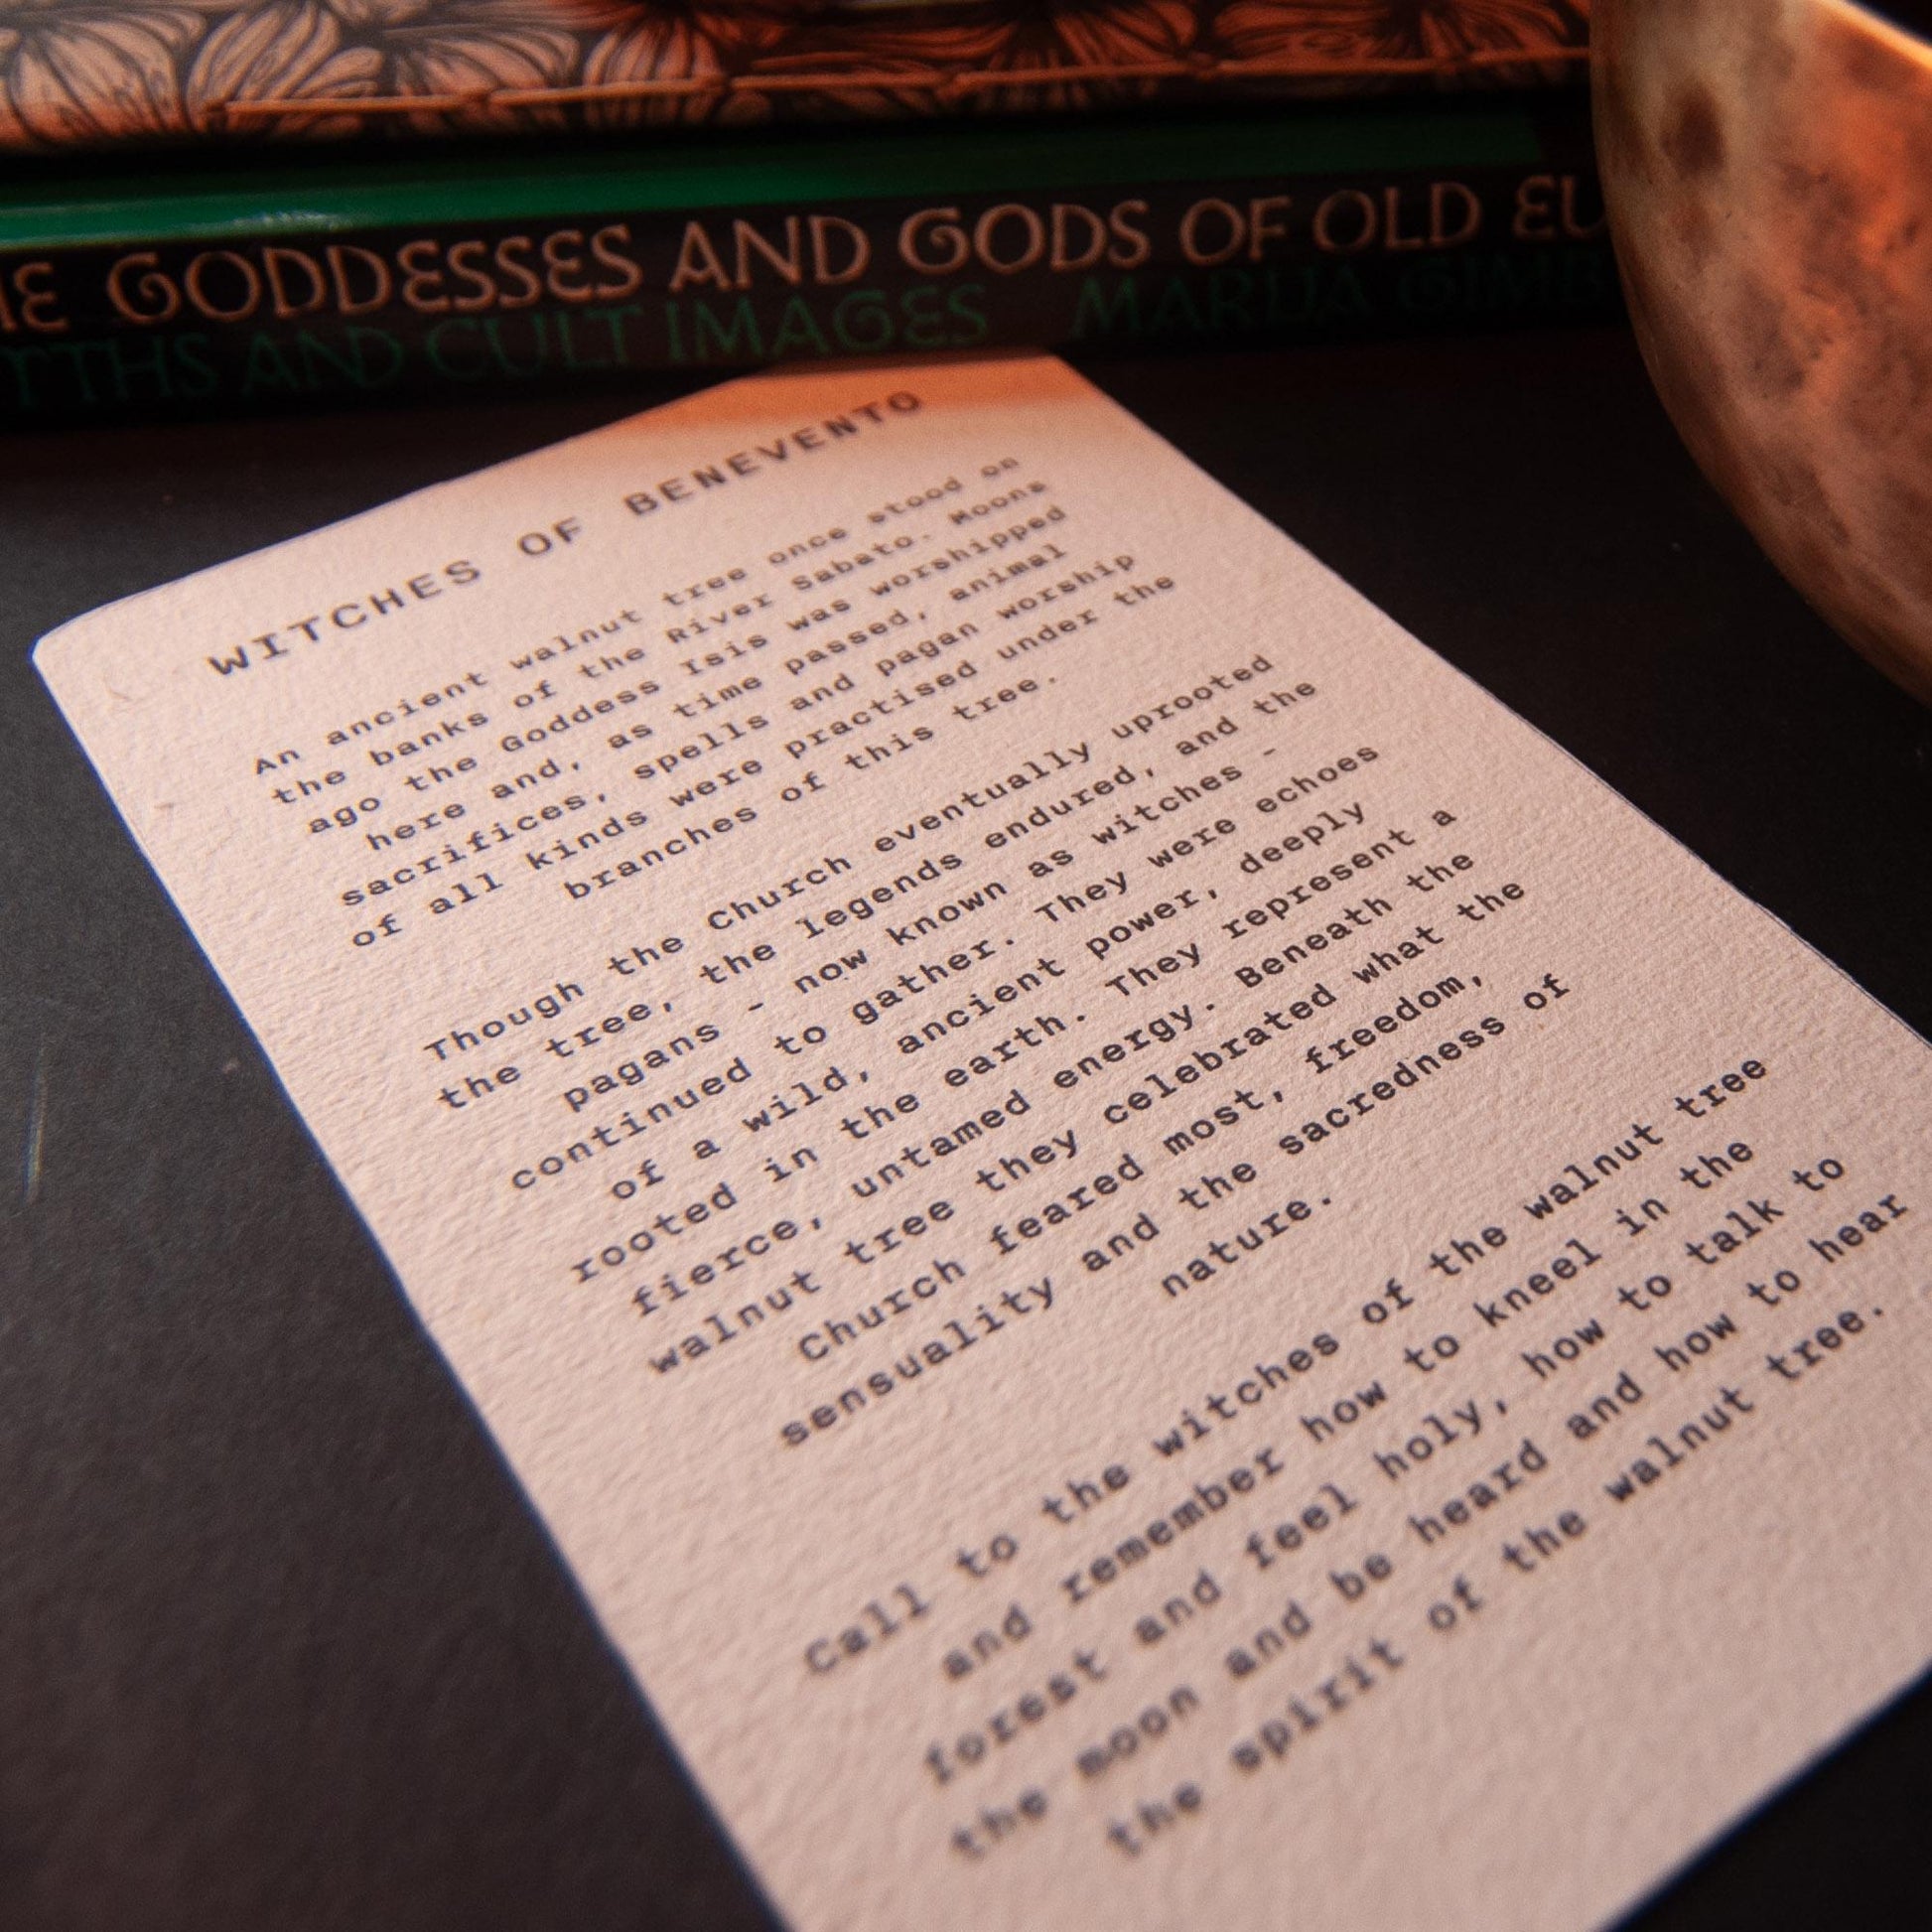 HE GODDESSES AND GODS OF OLD EU
YTHS AND CULT IMAGES MARIJA GIMB
WITCHES OF BENEVENTO
An ancient walnut tree once stood on
the banks of the River Sabato. Moons
ago the Goddess Isis was worshipped
here and, as time passed, animal
sacrifices, spells and pagan worship
of all kinds were practised under the
branches of this tree.
Though the Church eventually uprooted
the tree, the legends endured, and the
pagans - now known as witches -
continued to gather. They were echoes
of a wild, ancient power, deeply
rooted in the earth. They represent a
fierce, untamed energy. Beneath the
walnut tree they celebrated what the
Church feared most, freedom,
sensuality and the sacredness of
nature.
Call to the witches of the walnut tree
and remember how to kneel in the
forest and feel holy, how to talk to
the moon and be heard and how to hear
the spirit of the walnut tree.